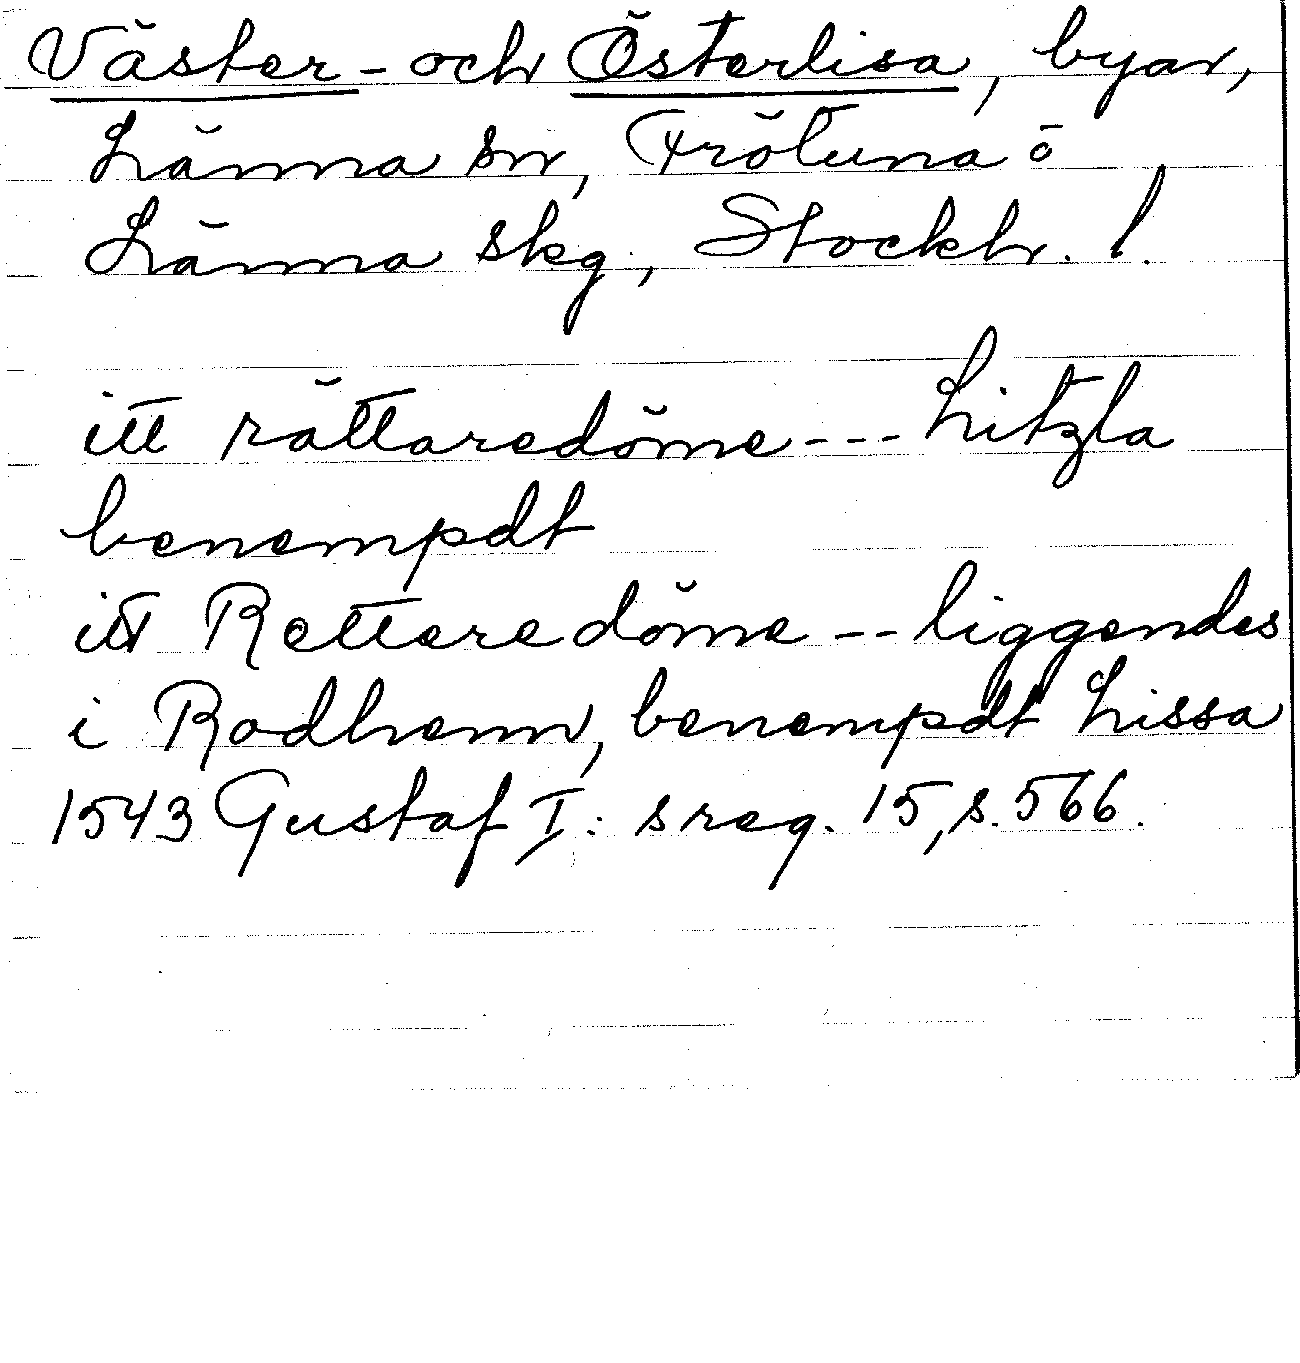 Väster- och Österlisa, byar,
Länna sn, Frötuna o
Länna skg, Stockh. l.
itt rättaredöme --- Litzla
benempdt
itt Retteredöme -- liggendes
i Rodhenn, benempdt Lissa
1543 Gustaf I:s reg. 15, s. 566.